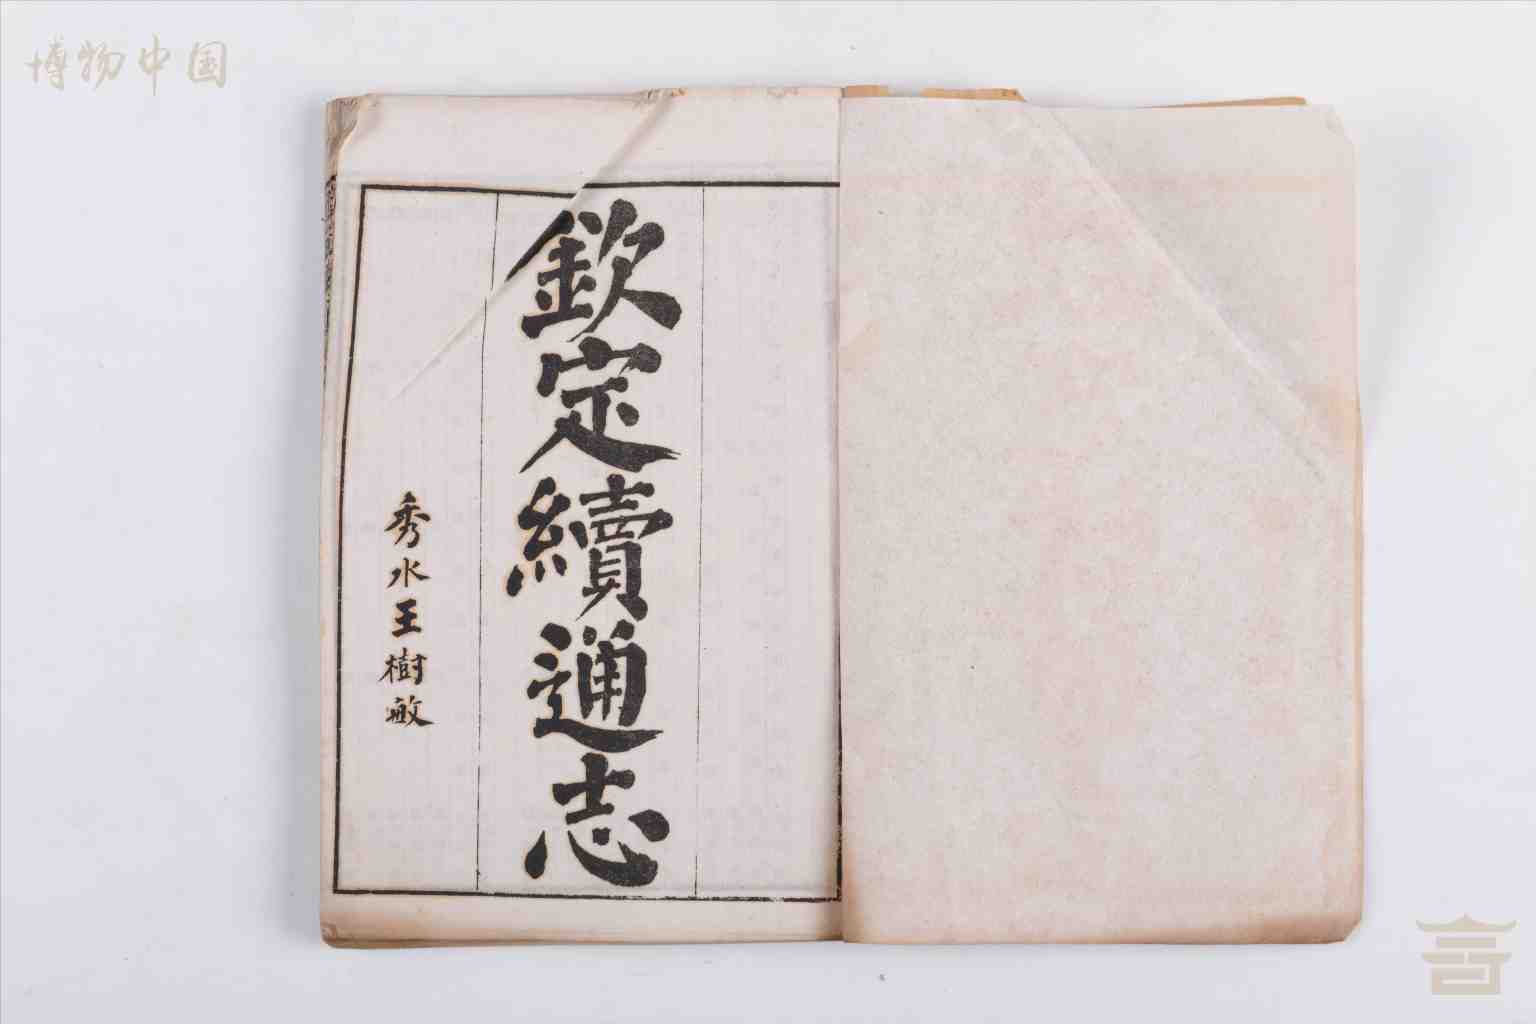 博物中国
欽定續通志
秀水王樹敏